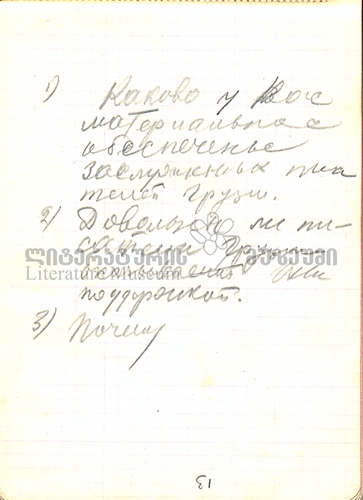 1) Каково у Вас
материальное
обеспеченье
заслуженных писа
телей Грузии.
2) Довольны ли пи-
сатели Грузии
оказываемой им
поддержкой.
3) Почему
ლიტერატურის მუზეუმი
Literature Museum
13